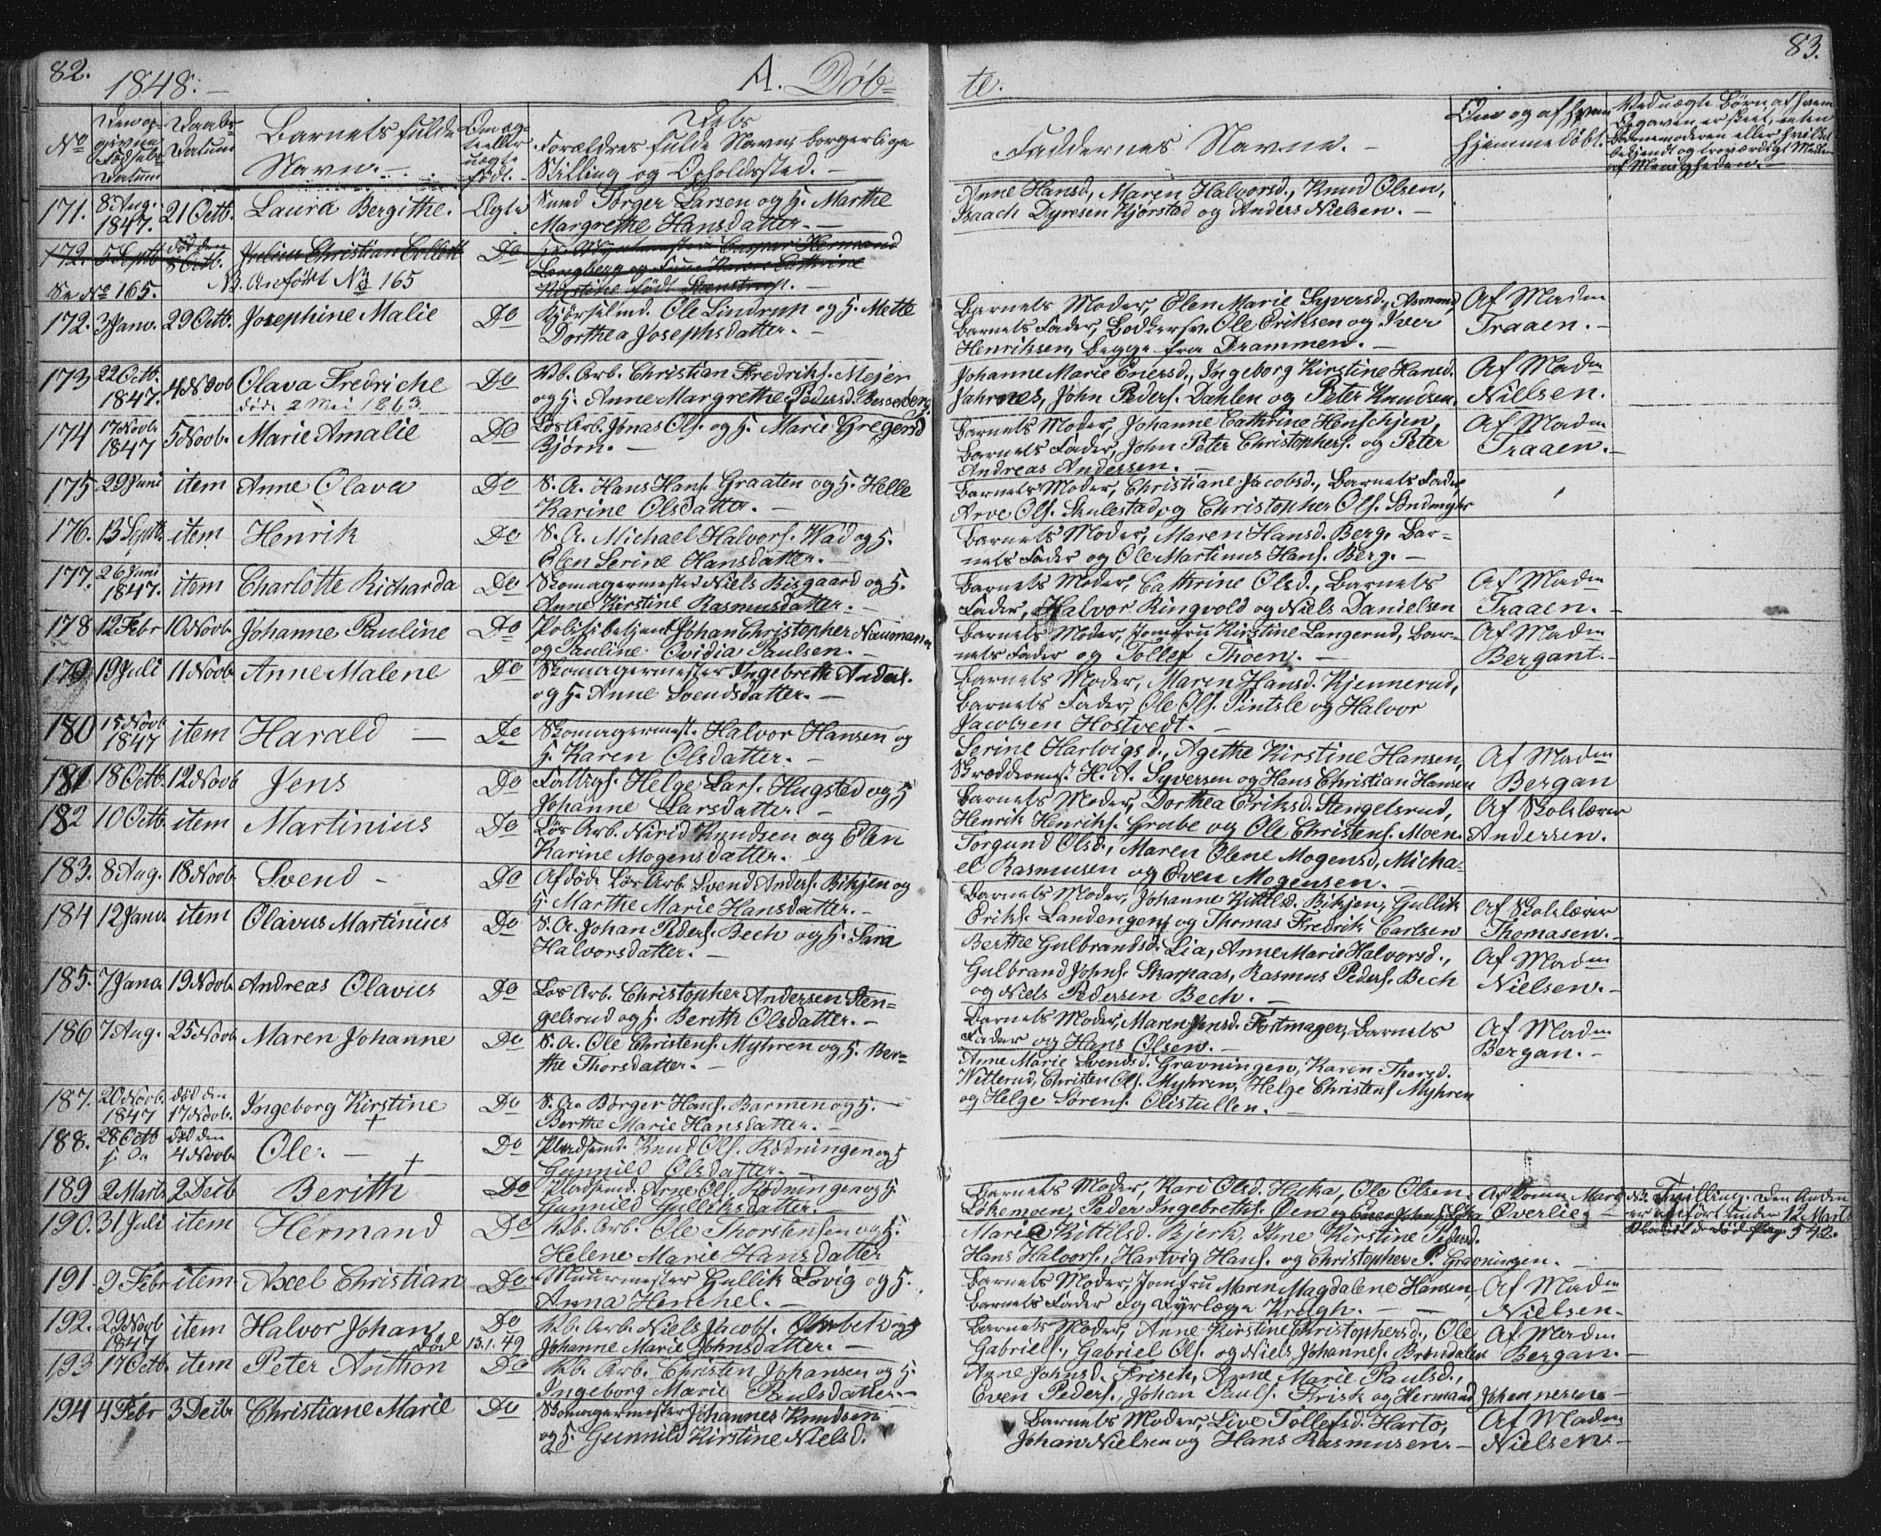 82.
1848. —
A. Døb-
No
Den op-
givne
Fødsels-
Datum
Daabs-
Datum
Barnets fulde
Navn. —
Om æg-
te eller
uægte
født. —
Forældres fulde Navn, borgerlige
Stilling og Opholdssted. —
171. 8. Aug. 1847. 21 Octb. Laura Bergithe. Ægte
Torger Larsen og H. Marthe
Margrethe Hansdatter. —
172. 5 Septb. død den 8 Octb. Julius Christian Collett Do
Se No 165. NB. Anført No 165
172. 3 Janv. 29 Octb. Josephine Malie Do
Ole Lindrup og H. Mette
Dorthea Josephsdatter. —
173 22 Octb. 1847. 4 Novb. Olava Fredriche Do
død 2 Mai 1863
Arb. Christian Fredriks. Mejer
og H. Anne Margrethe Pedersd. Besseberg
174 17 Novb. 1847 5 Novb. Marie Amalie Do
Løs Arb. Jonas Ols. og H. Marie Gregersd
Bjørn. —
175 29 Juni item Anne Olava Do
S. A. Hans Hans. Graaten og H. Helle
Karine Olsdatter. —
176. 13 Septb. item Henrik Do
S. A. Michael Halvors. Wad og H.
Elen Serine Hansdatter. —
177. 26 Juni 1847. item Charlotte Richarda Do
Skomagermester Niels Bisgaard og H.
Anne Kirstine Rasmusdatter. —
178 12 Febr 10 Novb. Johanne Pauline Do
Politibetjent Johan Christopher Naumann
og Pauline Ovidia Paulsen. —
179 19 Juli 11 Novb. Anne Malene Do
Skomagermester Ingebreth Anders.
og H. Anne Svendsdatter. —
180 15 Novb. 1847 item Harald — Do
Skomagermest. Halvor Hansen og
H. Karen Olsdatter. —
181 18 Octb. 12 Novb Jens Do
Helge Lars. Hugsted og H
Johanne Larsdatter. —
182 10 Octb. item Martinius Do
Løs Arb. Nirid Knudsen og Elen
Karine Mogensdatter. —
183. 8 Aug. 18 Novb. Svend — Do
Afdøde Løs Arb. Svend Anders. Bikjen og
H. Marthe Marie Hansdatter. —
184 12 Janv. item Olavus Martinius Do
S. A. Johan Peders. Bech og H. Sara
Halvorsdatter. —
185. 7 Janv. 19 Novb. Andreas Olavus Do
Løs Arb. Christopher Andersen Sten-
gelsrud og H. Berith Olsdatter. —
186 7 Aug. 25 Novb. Maren Johanne Do
S. A. Ole Christens. Myhren og H. Ber-
the Thorsdatter. —
187. 20 Novb. 1847 død den 17 Novb. Ingeborg Kirstine + Do
S. A. Børger Hans. Barmen og H.
Berthe Marie Hansdatter. —
188. 28 Octb død den 4 Novb. Ole. — + Do
Pladsemd. Knud Ols. Rødningen og H
Gunnild Olsdatter. —
189 2 Marts 2 Decb Berith Do
Pladsemd. Arne Ols. Rødningen og H.
Gunnild Gulliksdatter. —
190. 31 Juli item Hermand Do
Arb. Ole Thorstensen og H.
Helene Marie Hansdatter
191. 9 Febr item Axel Christian Do
Muurmester Gullik Løvig og H.
Anna Henchel. —
192. 29 Novb 1847 item Halvor Johan Do
Død 13.1.49
Arb. Niels Jacobs. og H
Johanne Marie Johnsdatter. —
193 17 Octb. item Peter Anthon Do
Arb. Christen Johansen og H.
Ingeborg Marie Paulsdatter. —
194 4 Febr 3 Decb. Christiane Marie Do
Skomagermester Johannes Knudsen
og H. Gunnild Kirstine Nielsd.
83.
te.
Faddernes Navne. —
Om og af hvem
hjemmedøbt.
Ved uægte Børn, af hvem
Begjæring er skeet, enten
Barnemoderen eller hvilket
bekjendt og troværdigt Medlem
af Menigheden. —
Anne Hansd., Maren Halvorsd., Knud Olsen,
Isaach Dyresen Kjørstad og Anders Nielsen. —
Barnets Moder, Elen Marie Syversd.,
Barnets Fader, Bødkersv. Ole Eriksen og Iver
Henriksen, begge fra Drammen. —
Af Madm Traaen. —
Johanne Marie Enersd., Ingeborg Kirstine Hansd.
Jahrnes, John Peders. Dahlen og Peter Knudsen.
Af Madm Nielsen.
Barnets Moder, Johanne Cathrine Henschjen,
Barnets Fader, John Peter Christophers. og Peter
Andreas Andersen. —
Af Madm Traaen. —
Barnets Moder, Christiane Jacobsd., Barnets Fader,
Arve Ols. Skulestad og Christopher Ols.
Barnets Moder, Maren Hansd. Berg, Bar-
nets Fader og Ole Martinus Hans. Berg. —
Barnets Moder, Cathrine Olsd., Barnets
Fader, Halvor Ringvold og Niels Danielsen
Af Madm Traaen. —
Barnets Moder, Jomfru Kirstine Langerud, Bar-
nets Fader og Tollef Thoen. —
Af Madm Bergant. —
Barnets Moder, Maren Hansd. Kjennerud,
Barnets Fader, Ole Ols. Pintsle og Halvor
Jacobsen Hostvedt. —
Serine Hartvigsd., Agethe Kirstine Hansen,
Skræddermest. H. A. Syversen og Hans Christian Hansen
Af Madm Bergan
Barnets Moder, Dorthea Eriksd. Stengelsrud,
Henrik Henriks. Grube og Ole Christens. Moen.
Af Skolelærer Andersen. —
Torgund Olsd., Maren Olene Mogensd., Micha-
el Rasmussen og Even Mogensen. —
Barnets Moder, Johanne Kittilsd. Bikjen, Gullik
Eriks. Landengen og Thomas Fredrik Carlsen
Af Skolelærer Thomasen. —
Berthe Gulbrandsd. Lia, Anne Marie Halvorsd.,
Gulbrand Johns. Skarpaas, Rasmus Peders. Bech
og Niels Pedersen Bech. —
Af Madm Nielsen. —
Barnets Moder, Maren Jensd. Fortmager, Barnets
Fader og Hans Olsen. —
Af Madm Bergan. —
Anne Marie Svendsd. Gravningen, Karen Thorsd.
Witterud, Christen Ols. Myhren, Helge Christens. Myhren
og Helge Sørens. Olistullen. —
Barnets Moder, Kari Olsd. Huka, Ole Olsen
Løkemoen, Peder Ingebreths. Øen og
Af Overlie, —
NB. Tvilling. Den Anden
er anført under 12 Marts
Pag. 542.
Maria Kittilsd. Bjerk, Anne Kirstine Pedersd.
Hans Halvors., Hartvig Hans. og Christopher P. Gravningen. —
Barnets Moder, Jomfru Maren Magdalene Hansen,
Barnets Fader og Dyrlæge Kragh. —
Af Madm Nielsen. —
Barnets Moder, Anne Kirstine Christophersd., Ole
Gabriels., Gabriel Ols. og Niels Johannes. Brøndalen
Af Madm Bergan. —
Anne Johnsd. Frisch, Anne Marie Paulsd.,
Even Peders., Johan Pauls. Frisk og Hermand Johannesen. —
Barnets Moder, Live Tollefsd. Harto,
Johan Nielsen og Hans Rasmussen. —
Af Madm Nielsen. —